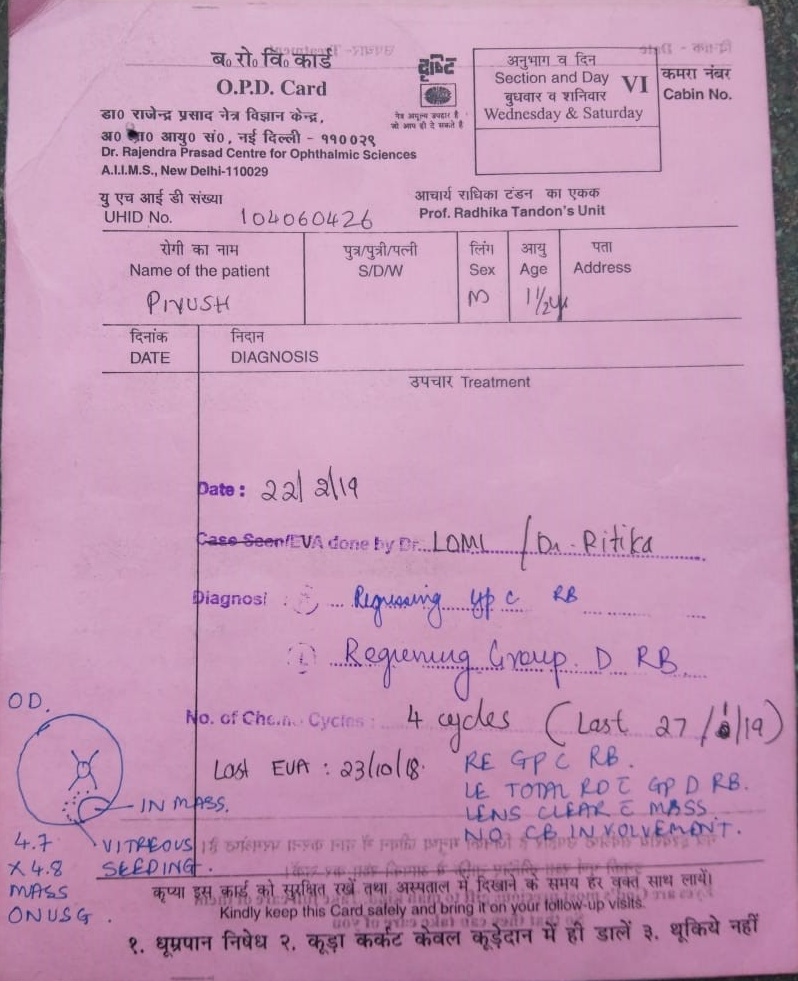 ब॰ रो॰ वि॰ कार्ड
O.P.D. Card
डा० राजेन्द्र प्रसाद नेत्र विज्ञान केन्द्र,
अ० भा० आयु० सं०, नई दिल्ली - ११००२९
Dr. Rajendra Prasad Centre for Ophthalmic Sciences
A.I.I.M.S., New Delhi-110029
दृष्टि
नेत्र अमूल्य उपहार है
जो आप ही दे सकते है
अनुभाग व दिन
Section and Day VI
बुधवार व शनिवार
Wednesday & Saturday
कमरा नंबर
Cabin No.
यु एच आई डी संख्या
UHID No. 104060426
आचार्य राधिका टंडन का एकक
Prof. Radhika Tandon's Unit
रोगी का नाम
Name of the patient
PIYUSH
पुत्र/पुत्री/पत्नी
S/D/W
लिंग
Sex
M
आयु
Age
1 1/2 yr
पता
Address
दिनांक
DATE
निदान
DIAGNOSIS
उपचार Treatment
Date : 22/2/19
Case Seen/EVA done by Dr... LOMI / Dr. Ritika
Diagnosi : Regressing gp C RB
Regressing Group D RB
No. of Chemo Cycles : 4 cycles (Last 27/1/19)
Last EVA : 23/10/18.
RE GP C RB.
LE TOTAL RD C GP D RB.
LENS CLEAR C MASS.
NO CB INVOLVEMENT.
OD.
IN MASS.
VITREOUS
SEEDING.
4.7
X 4.8
MASS
ON USG.
कृप्या इस कार्ड को सुरक्षित रखें तथा अस्पताल में दिखाने के समय हर वक्त साथ लायें।
Kindly keep this Card safely and bring it on your follow-up visits.
१. धूम्रपान निषेध २. कूड़ा कर्कट केवल कूड़ेदान में ही डालें ३. थूकिये नहीं